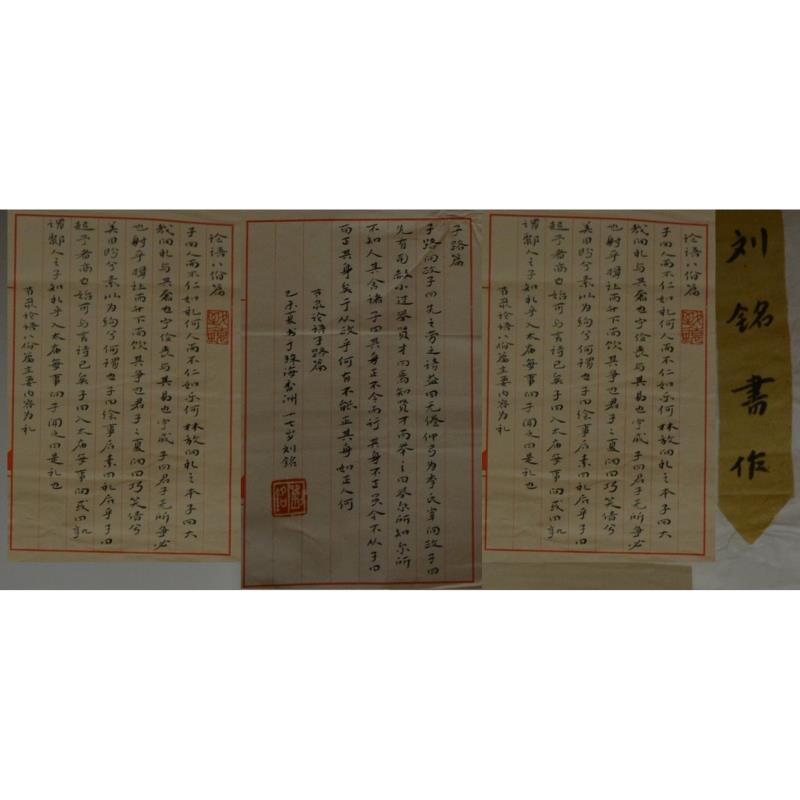 刘銘書作
论语八佾篇
子曰人而不仁如礼何人而不仁如乐何林放问礼之本子曰大
哉问礼与其奢也宁俭丧与其易也宁戚子曰君子无所争必
也射乎揖让而升下而饮其争也君子〻夏问曰巧笑倩兮
美目盼兮素以为绚兮何谓也子曰绘事后素曰礼后乎子曰
起予者商也始可与言诗已矣子曰入太庙每事问或曰孰
谓鄹人之子知礼乎入太庙每事问子闻之曰是礼也
节录论语八佾篇主要内容为礼
子路篇
子路问政子曰先之劳之请益曰无倦仲弓为季氏宰问政子曰
先有司赦小过举贤才曰焉知贤才而举之曰举尔所知尔所
不知人其舍诸子曰其身正不令而行其身不正虽令不从子曰
苟正其身矣于从政乎何有不能正其身如正人何
节录论语子路篇
乙未夏书于珠海香洲 十七岁刘铭
论语八佾篇
子曰人而不仁如礼何人而不仁如乐何林放问礼之本子曰大
哉问礼与其奢也宁俭丧与其易也宁戚子曰君子无所争必
也射乎揖让而升下而饮其争也君子〻夏问曰巧笑倩兮
美目盼兮素以为绚兮何谓也子曰绘事后素曰礼后乎子曰
起予者商也始可与言诗已矣子曰入太庙每事问或曰孰
谓鄹人之子知礼乎入太庙每事问子闻之曰是礼也
节录论语八佾篇主要内容为礼